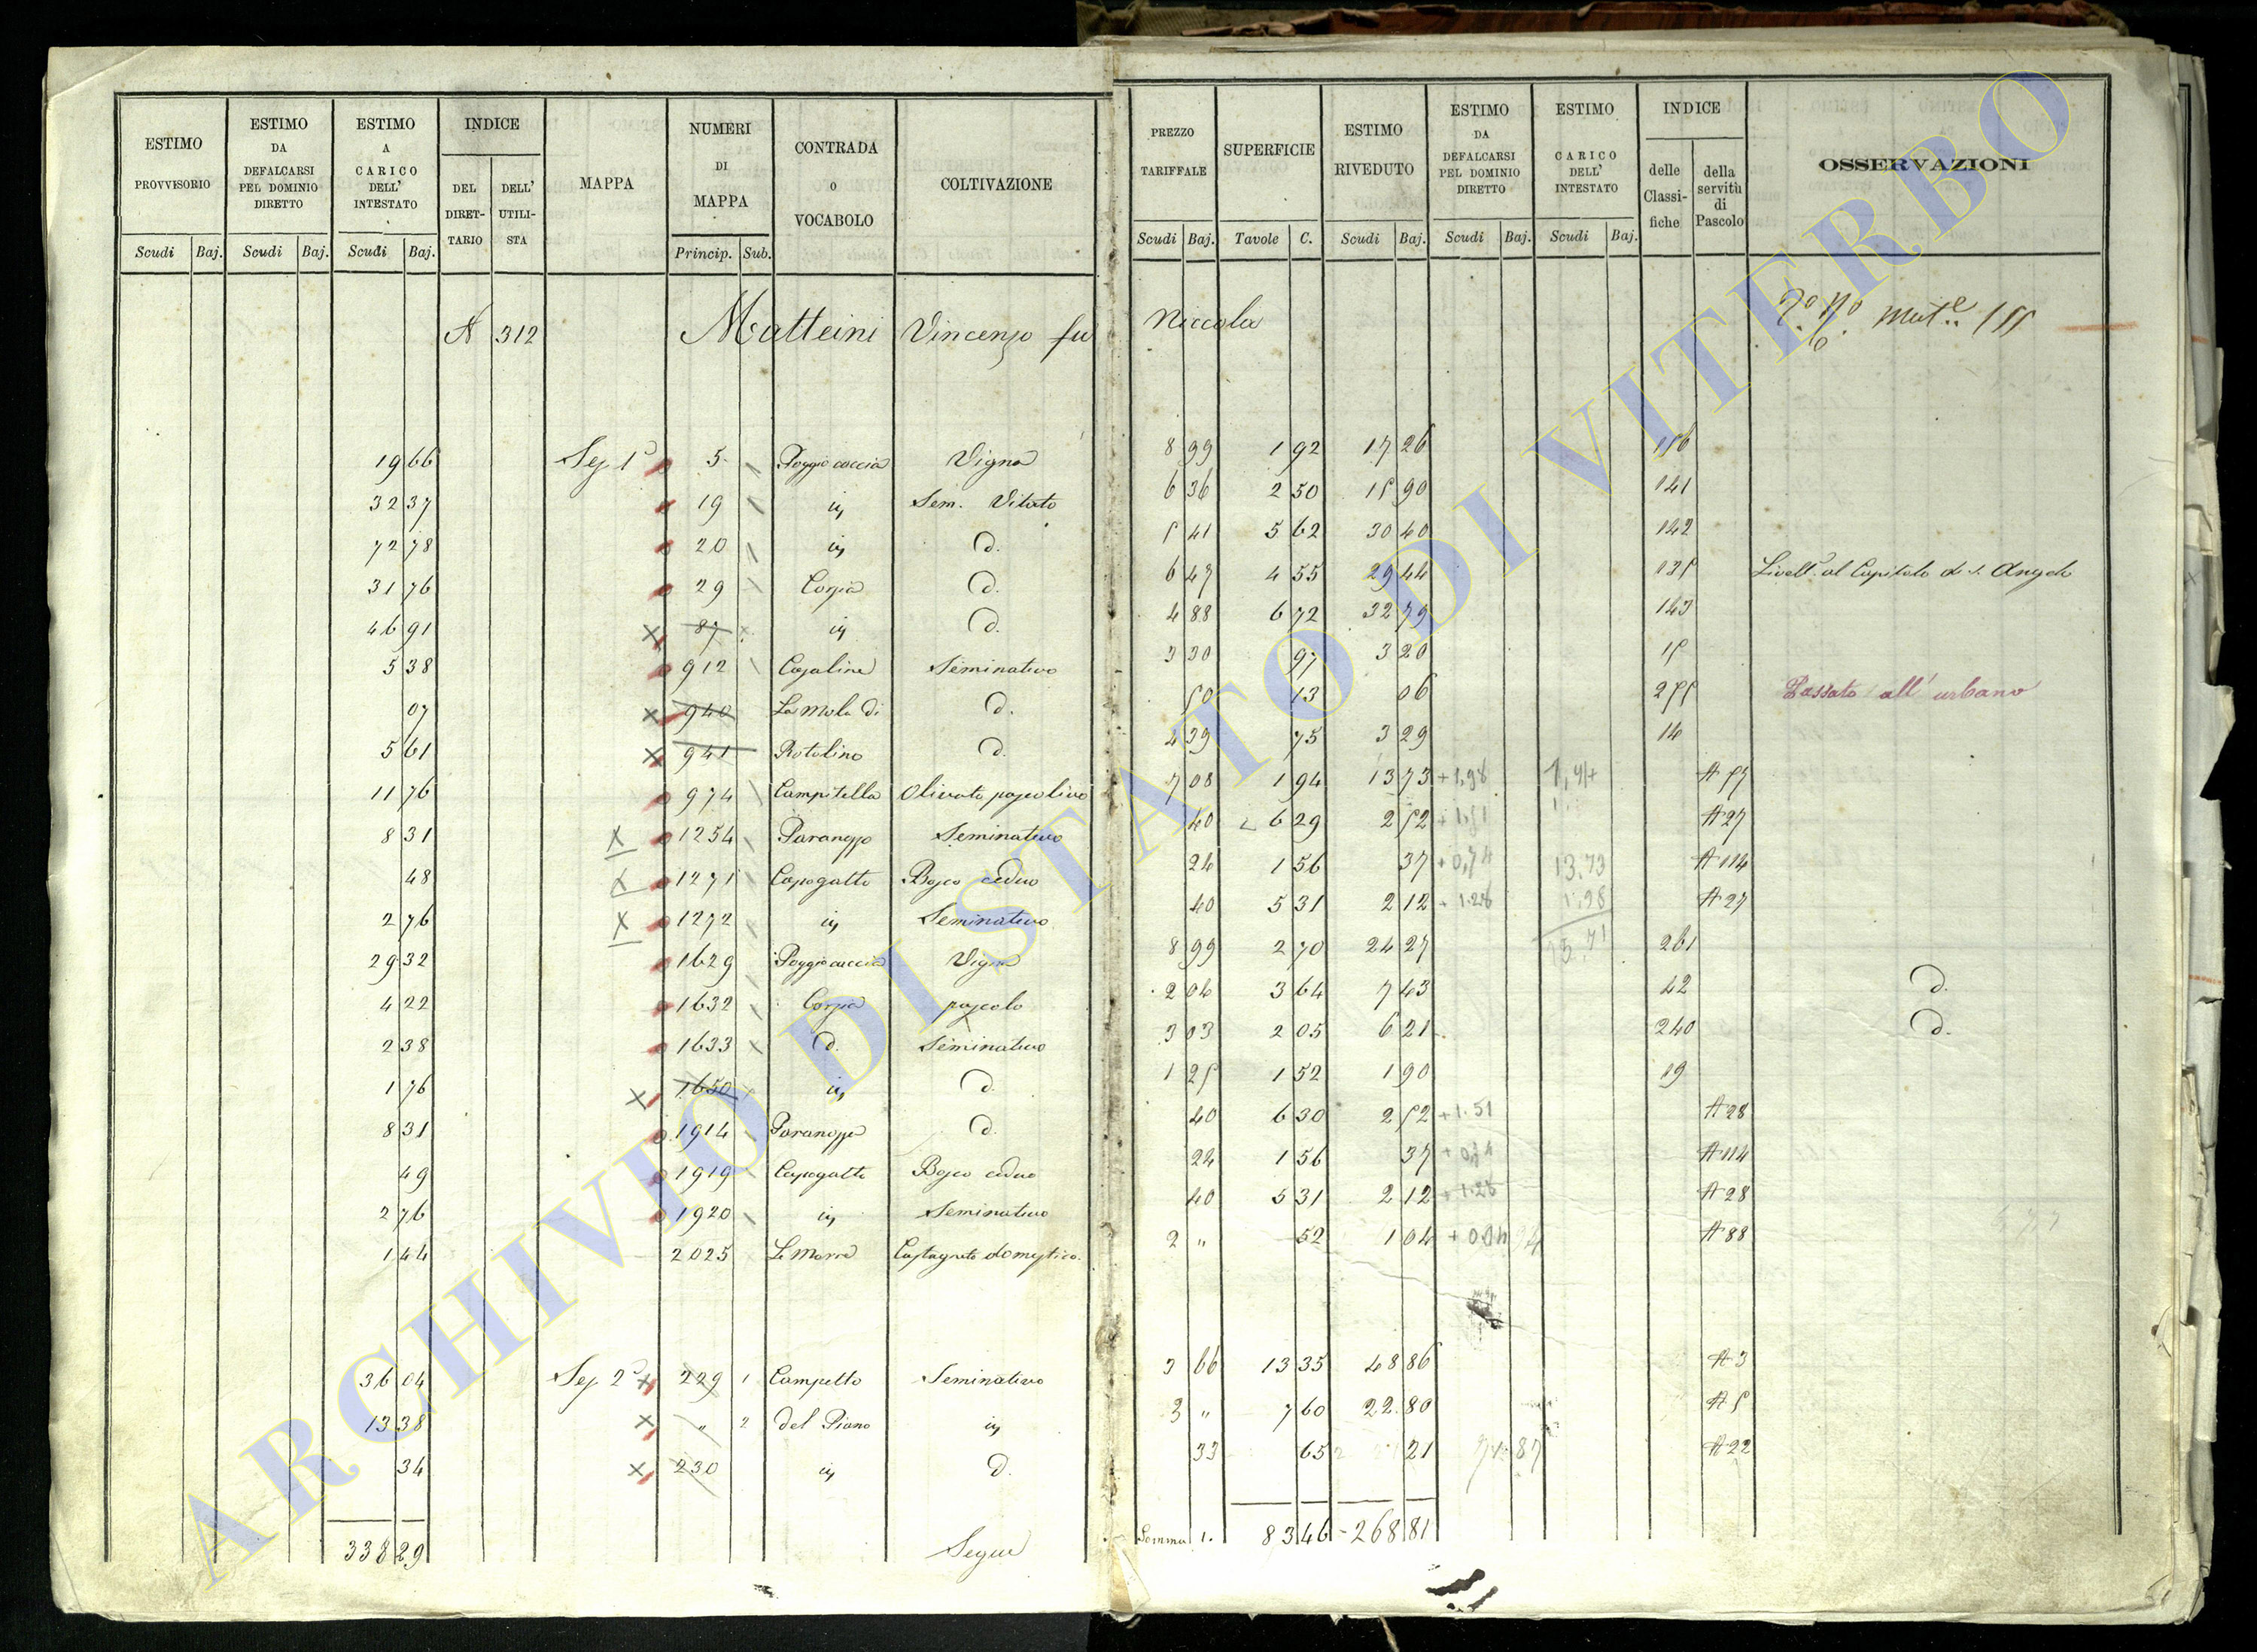 ESTIMO PROVVISORIO Scudi Baj.
ESTIMO DA DEFALCARSI PEL DOMINIO DIRETTO Scudi Baj.
ESTIMO A CARICO DELL' INTESTATO Scudi Baj.
INDICE DEL DIRETTARIO DELL' UTILISTA
MAPPA
NUMERI DI MAPPA Princip. Sub.
CONTRADA O VOCABOLO
COLTIVAZIONE
PREZZO TARIFFALE Scudi Baj.
SUPERFICIE Tavole C.
ESTIMO RIVEDUTO Scudi Baj.
ESTIMO DA DEFALCARSI PEL DOMINIO DIRETTO Scudi Baj.
ESTIMO CARICO DELL' INTESTATO Scudi Baj.
INDICE delle Classifiche della servitù di Pascolo
OSSERVAZIONI
A 312 Matteini Vincenzo fu Niccola
19 66 Sez 1ª 5 Poggio caccia Vigna 8 99 1 92 17 26 156
32 37 19 iv Sem. Vitato 6 36 2 50 15 90 141
72 78 20 iv d. 5 41 5 62 30 40 142
31 76 29 Corpia d. 6 47 4 55 29 44 135 Livell.º al Capitolo di S. Angelo
46 91 87 iv d. 4 88 6 72 32 79 143
5 38 912 Casaline Seminativo 3 30 97 3 20 15
07 940 La Mola di d. 50 13 06 255 Passato all' urbano
5 61 941 Rotolino d. 4 39 75 3 29 14
11 76 974 Campitella Olivato pascolivo 7 08 1 94 13 73 +1,98 A 57
8 31 1254 Paranzzo Seminativo 40 6 29 2 52 +1.51 A 27
48 1271 Capogatto Bosco ceduo 24 1 56 37 +0,74 13.73 A 114
2 76 1272 iv Seminativo 40 5 31 2 12 + 1.28 1.98 A 27
29 32 1629 Poggio caccia Vigna 8 99 2 70 24 27 15.71 261
4 22 1632 Corpia pascolo 2 04 3 64 7 43 42 d.
2 38 1633 d. Seminativo 3 03 2 05 6 21 240 d.
1 76 1650 iv d. 1 25 1 52 1 90 19
8 31 1914 d. 40 6 30 2 52 +1.51 A 28
49 1919 Capogatto Bosco ceduo 24 1 56 37 A 114
2 76 1920 iv Seminativo 40 5 31 2 12 A 28
1 44 2025 Le Morre Castagneto domestico. 2 " 52 1 04 A 88
36 04 Sez 2ª 229 1 Campetto Seminativo 3 66 13 35 48 86 A 3
13 38 " 2 del Piano iv 3 " 7 60 22 80 A 5
34 230 iv d. 33 65 21 A 22
338 29 Segue Somma 1. 83 46 268 81
ARCHIVIO DI STATO DI VITERBO